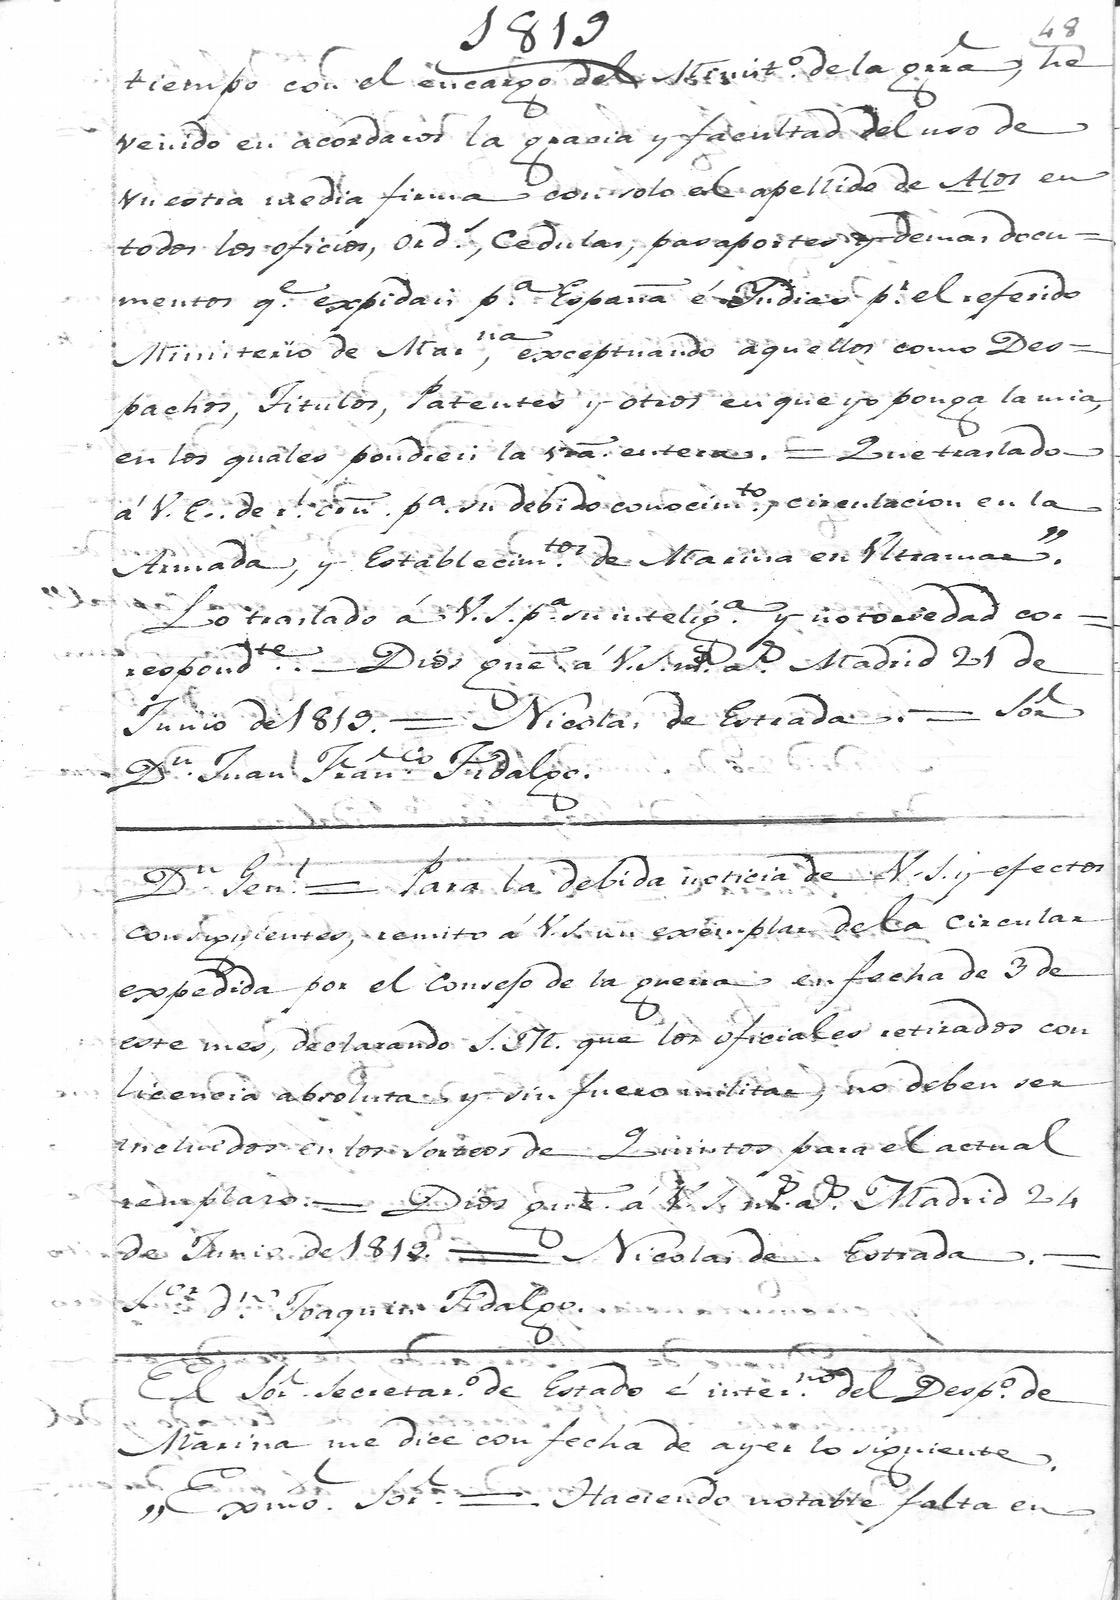 1819
48
tiempo con el encargo del Minist.º de la grra, he
venido en acordaros la gracia y facultad del uso de
vuestra media firma con solo el apellido de Alos en
todos los oficios, Ord.s, Cedulas, pasaportes y demas docu=
mentos q.e expidais p.a España é Indias p.r el referido
Ministerio de Mar.na, exceptuando aquellos como Des=
pachos, Titulos, Patentes y otros en que yo ponga la mia,
en los quales pondreis la vra. entera. = Que traslado
á V. E. de r.l orn. p.a su debido conocim.to, circulacion en la
Armada, y Establecim.tos de Marina en Ultramar".
Lo traslado á V. S. p.a su intelig.a y notoriedad cor=
respond.te = Dios gue. á V. S. m.s a.s Madrid 21 de
Junio de 1819. = Nicolas de Estrada. = Sor.
D.n Juan Fran.cio Fidalgo.
D.n Gen.l = Para la debida noticia de V. S. y efectos
consiguientes, remito á V. S. un exemplar de la circular
expedida por el Consejo de la guerra en fecha de 3 de
este mes, declarando S. M. que los oficiales retirados con
licencia absoluta y sin fuero militar, no deben ser
incluidos en los sorteos de Quintos para el actual
remplazo. = Dios gue. á V. S. m.s a.s Madrid 24
de Junio de 1819. = Nicolas de Estrada. =
S.or d.n Joaquin Fidalgo.
El Sor. Secretar.º de Estado é inter.no del Desp.º de
Marina me dice con fecha de ayer lo siguiente.
"Exmo. Sor. = Haciendo notable falta en